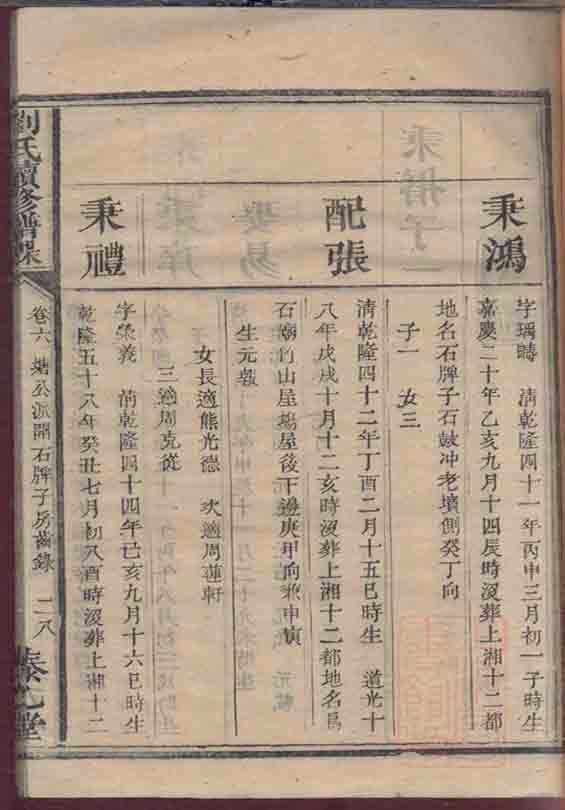 秉鴻
字瑀疇 清乾隆四十一年丙申三月初一子時生
嘉慶二十年乙亥九月十四辰時沒葬上湘十二都
地名石牌子石鼓冲老墳側癸丁向
子一 女三
配張
清乾隆四十二年丁酉二月十五巳時生 道光十
八年戊戌十月十二亥時沒葬上湘十二都地名昌
石廟竹山屋場屋後下邊庚甲向兼申寅
生元報
女長適熊光德 次適周蓮軒
三適周克從
秉禮
字榮義 清乾隆四十四年己亥九月十六巳時生
乾隆五十八年癸丑七月初八酉時沒葬上湘十二
劉氏續修譜牒
卷六 公派開石牌子房齒錄 二八
堂